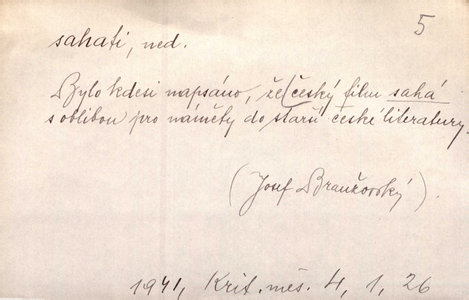 5
sahati, ned.
Bylo kdesi napsáno, že český film sahá
s oblibou pro náměty do starší české literatury.
(Josef Branžovský).
1941, Krit. měs. 4, 1, 26